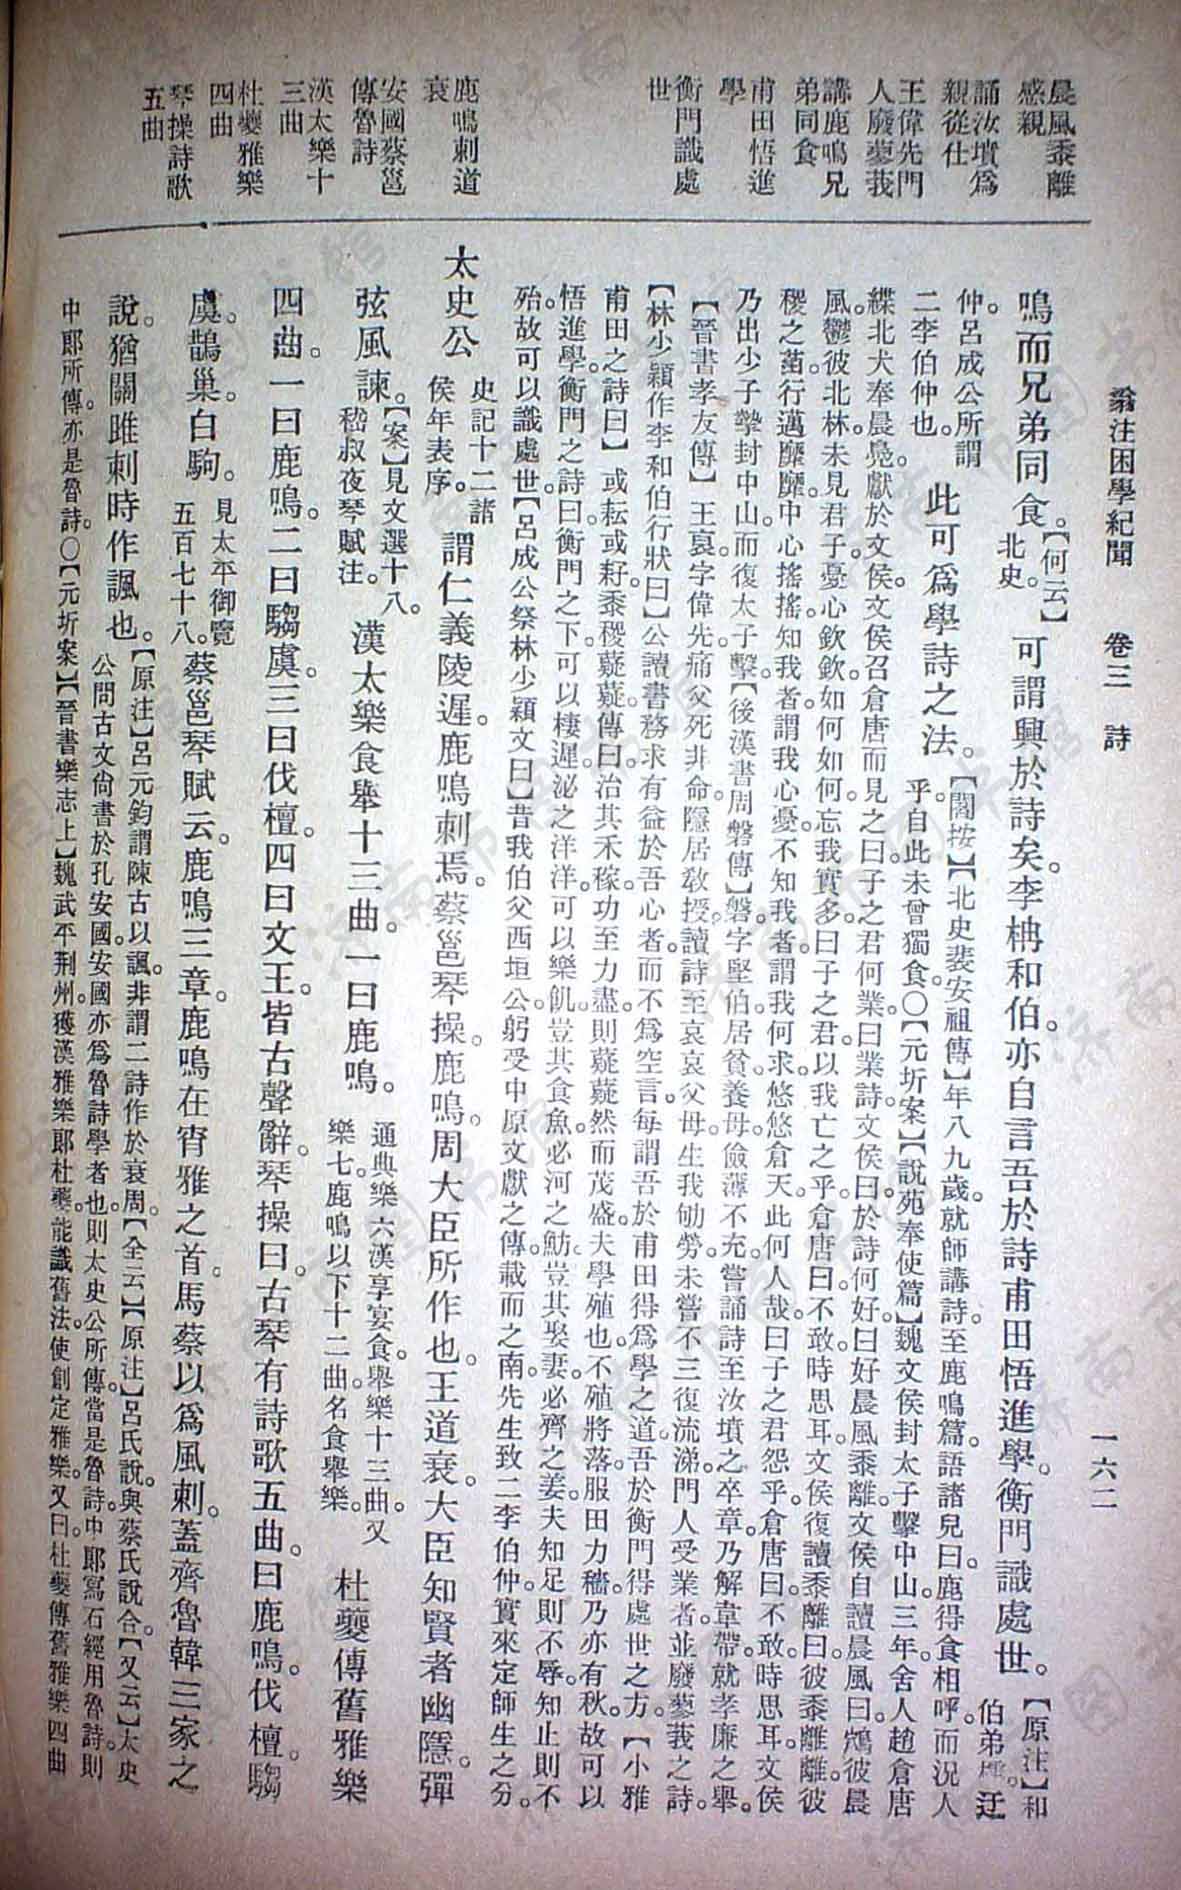 翁注困學紀聞　卷三　詩　一六二
晨風黍離
感親
誦汝墳爲
親從仕
王偉先門
人廢蓼莪
講鹿鳴兄
弟同食
甫田悟進
學
衡門識處
世
鹿鳴刺道
衰
安國蔡邕
傳魯詩
漢太樂十
三曲
杜夔雅樂
四曲
琴操詩歌
五曲
鳴而兄弟同食。【何云】北史。可謂興於詩矣。李柟和伯。亦自言吾於詩甫田悟進學。衡門識處世。【原注】和伯弟樗。迂
仲。呂成公所謂二李伯仲也。此可爲學詩之法。【閻按】【北史裴安祖傳】年八九歲。就師講詩。至鹿鳴篇。語諸兒曰。鹿得食相呼。而況人乎。自此未曾獨食。〇【元圻案】【說苑奉使篇】魏文侯封太子擊中山。三年。舍人趙倉唐
緤北犬奉晨鳧。獻於文侯。文侯召倉唐而見之。曰。子之君何業。曰。業詩。文侯曰。於詩何好。曰。好晨風黍離。文侯自讀晨風曰。鴥彼晨
風。鬱彼北林。未見君子。憂心欽欽。如何如何。忘我實多。曰。子之君。以我亡之乎。倉唐曰。不敢。時思耳。文侯復讀黍離。曰。彼黍離離。彼
稷之苗。行邁靡靡。中心搖搖。知我者。謂我心憂。不知我者。謂我何求。悠悠倉天。此何人哉。曰。子之君怨乎。倉唐曰。不敢。時思耳。文侯
乃出少子摯。封中山。而復太子擊。【後漢書周磐傳】磐字堅伯。居貧養母。儉薄不充。嘗誦詩至汝墳之卒章。乃解韋帶。就孝廉之舉。
【晉書孝友傳】王裒字偉先。痛父死非命。隱居敎授。讀詩至哀哀父母。生我劬勞。未嘗不三復流涕。門人受業者。並廢蓼莪之詩。
【林少穎作李和伯行狀曰】公讀書務求有益於吾心者。而不爲空言。每謂吾於甫田得爲學之道。吾於衡門得處世之方。【小雅
甫田之詩曰】或耘或耔。黍稷薿薿。傳曰。治其禾稼。功至力盡。則薿薿然而茂盛。夫學殖也。不殖將落。服田力穡。乃亦有秋。故可以
悟進學。衡門之詩曰。衡門之下。可以棲遲。泌之洋洋。可以樂飢。豈其食魚。必河之魴。豈其娶妻。必齊之姜。夫知足則不辱。知止則不
殆。故可以識處世。【呂成公祭林少穎文曰】昔我伯父西垣公。躬受中原文獻之傳。載而之南。先生致二李伯仲。實來定師生之分。
太史公史記十二諸侯年表序。謂仁義陵遲。鹿鳴刺焉。蔡邕琴操。鹿鳴。周大臣所作也。王道衰。大臣知賢者幽隱。彈
弦風諫。【案】見文選十八。嵇叔夜琴賦注。漢太樂食舉十三曲。一曰鹿鳴。通典樂六漢享宴食。舉樂十三曲。又樂七。鹿鳴以下十二曲。名食舉樂。杜夔傳舊雅樂
四曲。一曰鹿鳴。二曰騶虞。三曰伐檀。四曰文王。皆古聲辭。琴操曰。古琴有詩歌五曲。曰鹿鳴。伐檀。騶
虞。鵲巢。白駒。見太平御覽五百七十八。蔡邕琴賦云。鹿鳴三章。鹿鳴在宵雅之首。馬蔡以爲風刺。蓋齊魯韓三家之
說。猶關雎刺時作諷也。【原注】呂元鈞謂陳古以諷。非謂二詩作於衰周。【全云】【原注】呂氏說。與蔡氏說合。【又云】太史公問古文尙書於孔安國。安國亦爲魯詩學者也。則太史公所傳。當是魯詩。中郎寫石經用魯詩。則
中郎所傳。亦是魯詩。〇【元圻案】【晉書樂志上】魏武平荆州。獲漢雅樂郎杜夔。能識舊法。使創定雅樂。又曰。杜夔傳舊雅樂四曲